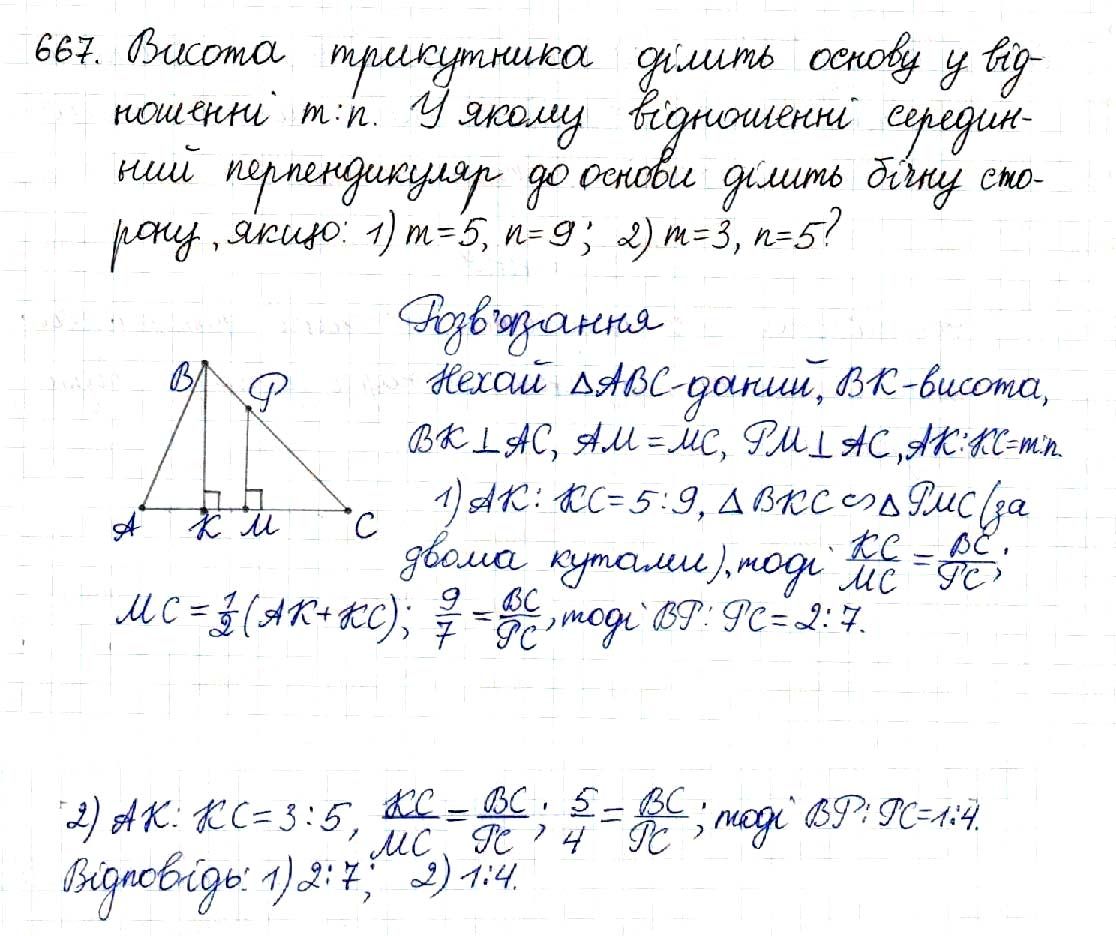 667. Висота трикутника ділить основу у від-
ношенні m:n. У якому відношенні середин-
ний перпендикуляр до основи ділить бічну сто-
рону, якщо: 1) m=5, n=9; 2) m=3, n=5?
Розв'язання
B P
A K M C
Нехай △ABC-даний, BK-висота,
BK⊥AC, AM=MC, PM⊥AC, AK:KC=m:n.
1) AK: KC=5:9, △BKC∽△PMC (за
двома кутами), тоді KC/MC = BC/PC;
MC = 1/2 (AK+KC); 9/7 = BC/PC, тоді BP: PC=2:7.
2) AK: KC=3:5, KC/MC = BC/PC; 5/4 = BC/PC; тоді BP:PC=1:4.
Відповідь: 1) 2:7; 2) 1:4.